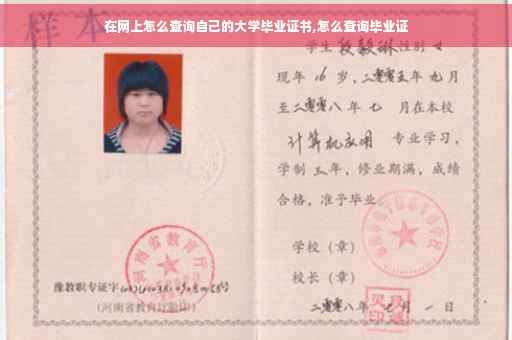 样本
在网上怎么查询自己的大学毕业证书,怎么查询毕业证
学生段毅琳性别女
现年16岁,二零零五年九月
至二零零八年七月在本校
计算机应用 专业学习,
学制三年,修业期满,成绩
合格,准予毕业
学校(章)
河南省教育厅
校长(章)
豫教职专证字
(河南省教育厅验印)
二零零八年七月一日